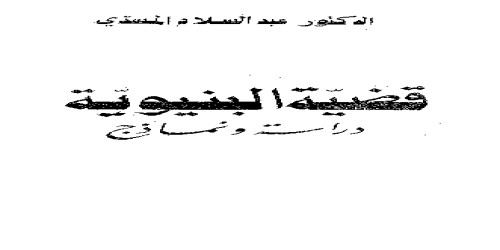 الدكتور عبد السلام المسدي
قضيّة البنيويّة
دراسة ونماذج